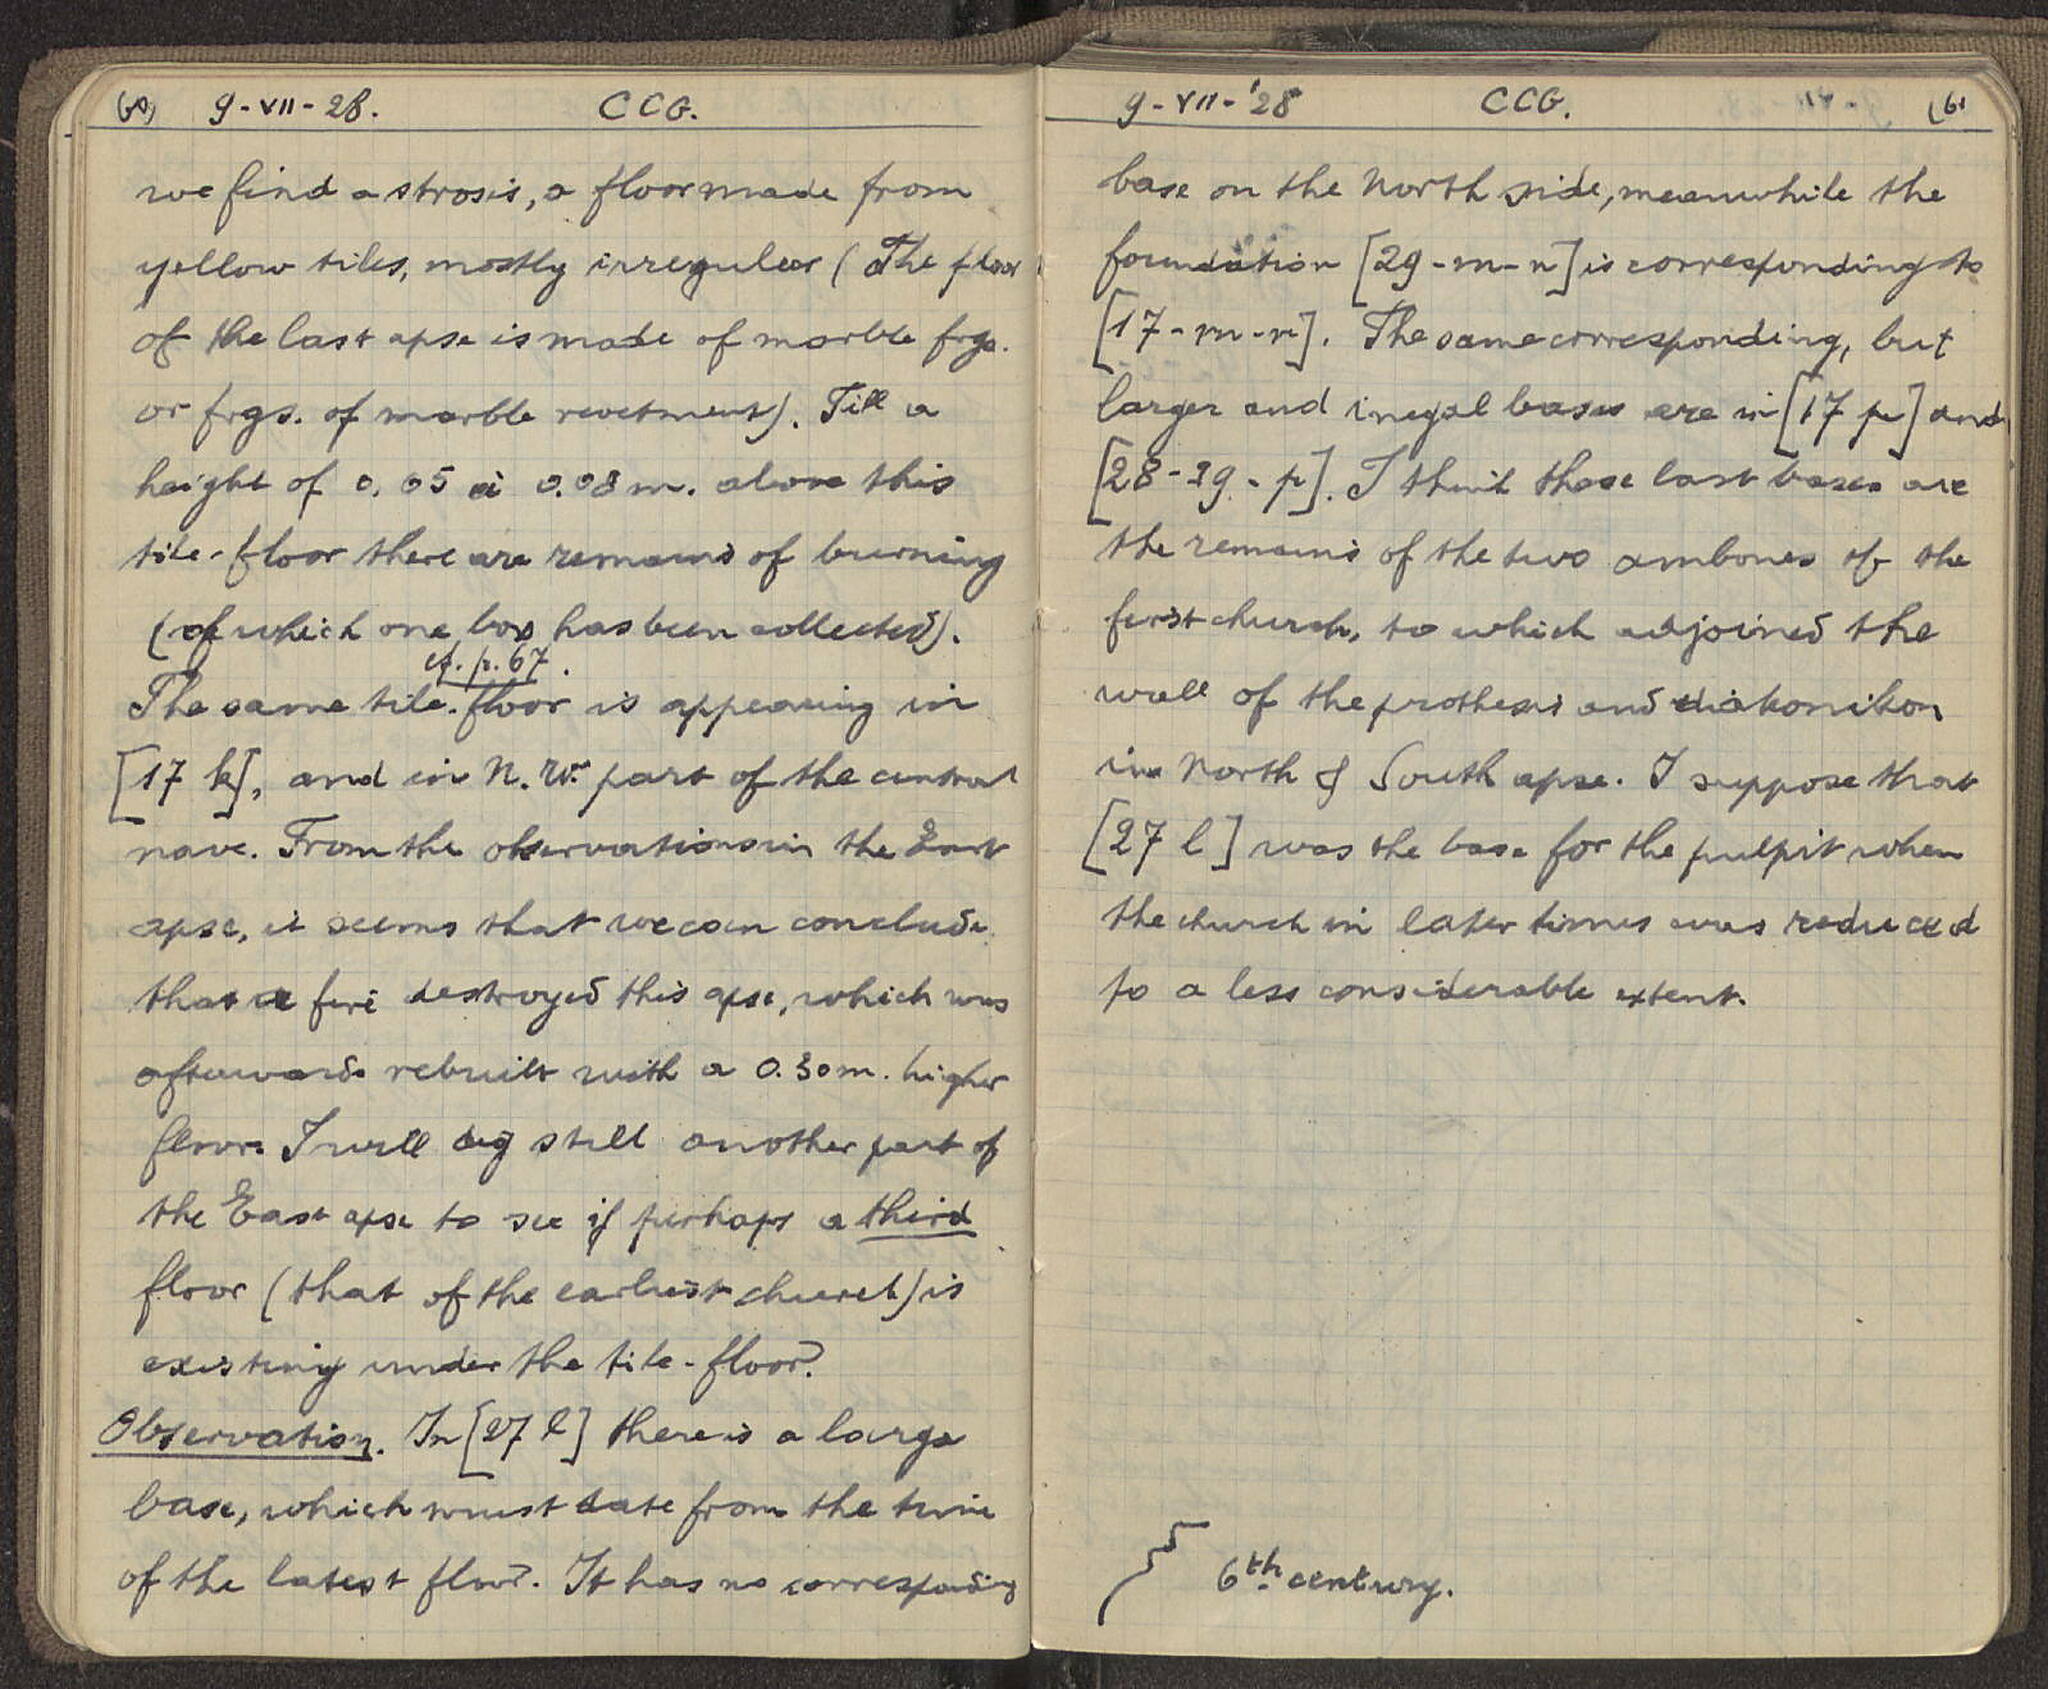 (60) 9-VII-28. CCG.
we find a strosis, a floor made from
yellow tiles, mostly irregular (The floor
of the last apse is made of marble frgs.
or frgs. of marble revetment). Till a
height of 0.05 à 0.08 m. above this
tile-floor there are remains of burning
(of which one box has been collected).
cf. p. 67.
The same tile-floor is appearing in
[17 k], and in N.W. part of the central
nave. From the observations in the East
apse, it seems that we can conclude
that a fire destroyed this apse, which was
afterwards rebuilt with a 0.30 m. higher
floor. I will dig still another part of
the East apse to see if perhaps a third
floor (that of the earliest church) is
existing under the tile-floor.
Observation. In [27 l] there is a large
base, which must date from the time
of the latest floor. It has no corresponding
9-VII-'28 CCG. (61
base on the North side, meanwhile the
foundation [29-m-n] is corresponding to
[17-m-n]. The same corresponding, but
larger and inegal bases are in [17 p] and
[28-29-p]. I think these last bases are
the remains of the two ambones of the
first church, to which adjoined the
wall of the prothesis and diakonikon
in North & South apse. I suppose that
[27 l] was the base for the pulpit when
the church in later times was reduced
to a less considerable extent.
6th century.